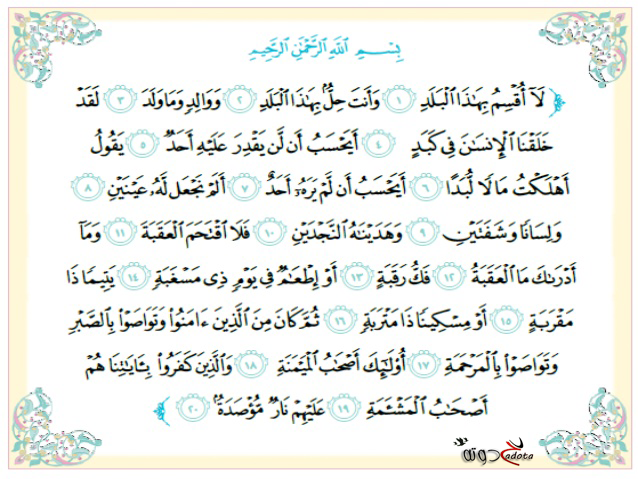 بِسْمِ اللَّهِ الرَّحْمَٰنِ الرَّحِيمِ
لَآ أُقْسِمُ بِهَٰذَا ٱلْبَلَدِ ١ وَأَنتَ حِلٌّۢ بِهَٰذَا ٱلْبَلَدِ ٢ وَوَالِدٍ وَمَا وَلَدَ ٣ لَقَدْ
خَلَقْنَا ٱلْإِنسَٰنَ فِى كَبَدٍ ٤ أَيَحْسَبُ أَن لَّن يَقْدِرَ عَلَيْهِ أَحَدٌ ٥ يَقُولُ
أَهْلَكْتُ مَالًا لُّبَدًا ٦ أَيَحْسَبُ أَن لَّمْ يَرَهُۥٓ أَحَدٌ ٧ أَلَمْ نَجْعَل لَّهُۥ عَيْنَيْنِ ٨
وَلِسَانًا وَشَفَتَيْنِ ٩ وَهَدَيْنَٰهُ ٱلنَّجْدَيْنِ ١٠ فَلَا ٱقْتَحَمَ ٱلْعَقَبَةَ ١١ وَمَآ
أَدْرَىٰكَ مَا ٱلْعَقَبَةُ ١٢ فَكُّ رَقَبَةٍ ١٣ أَوْ إِطْعَٰمٌ فِى يَوْمٍ ذِى مَسْغَبَةٍ ١٤ يَتِيمًا ذَا
مَقْرَبَةٍ ١٥ أَوْ مِسْكِينًا ذَا مَتْرَبَةٍ ١٦ ثُمَّ كَانَ مِنَ ٱلَّذِينَ ءَامَنُوا۟ وَتَوَاصَوْا۟ بِٱلصَّبْرِ
وَتَوَاصَوْا۟ بِٱلْمَرْحَمَةِ ١٧ أُو۟لَٰٓئِكَ أَصْحَٰبُ ٱلْمَيْمَنَةِ ١٨ وَٱلَّذِينَ كَفَرُوا۟ بِـَٔايَٰتِنَا هُمْ
أَصْحَٰبُ ٱلْمَشْـَٔمَةِ ١٩ عَلَيْهِمْ نَارٌ مُّؤْصَدَةٌۢ ٢٠